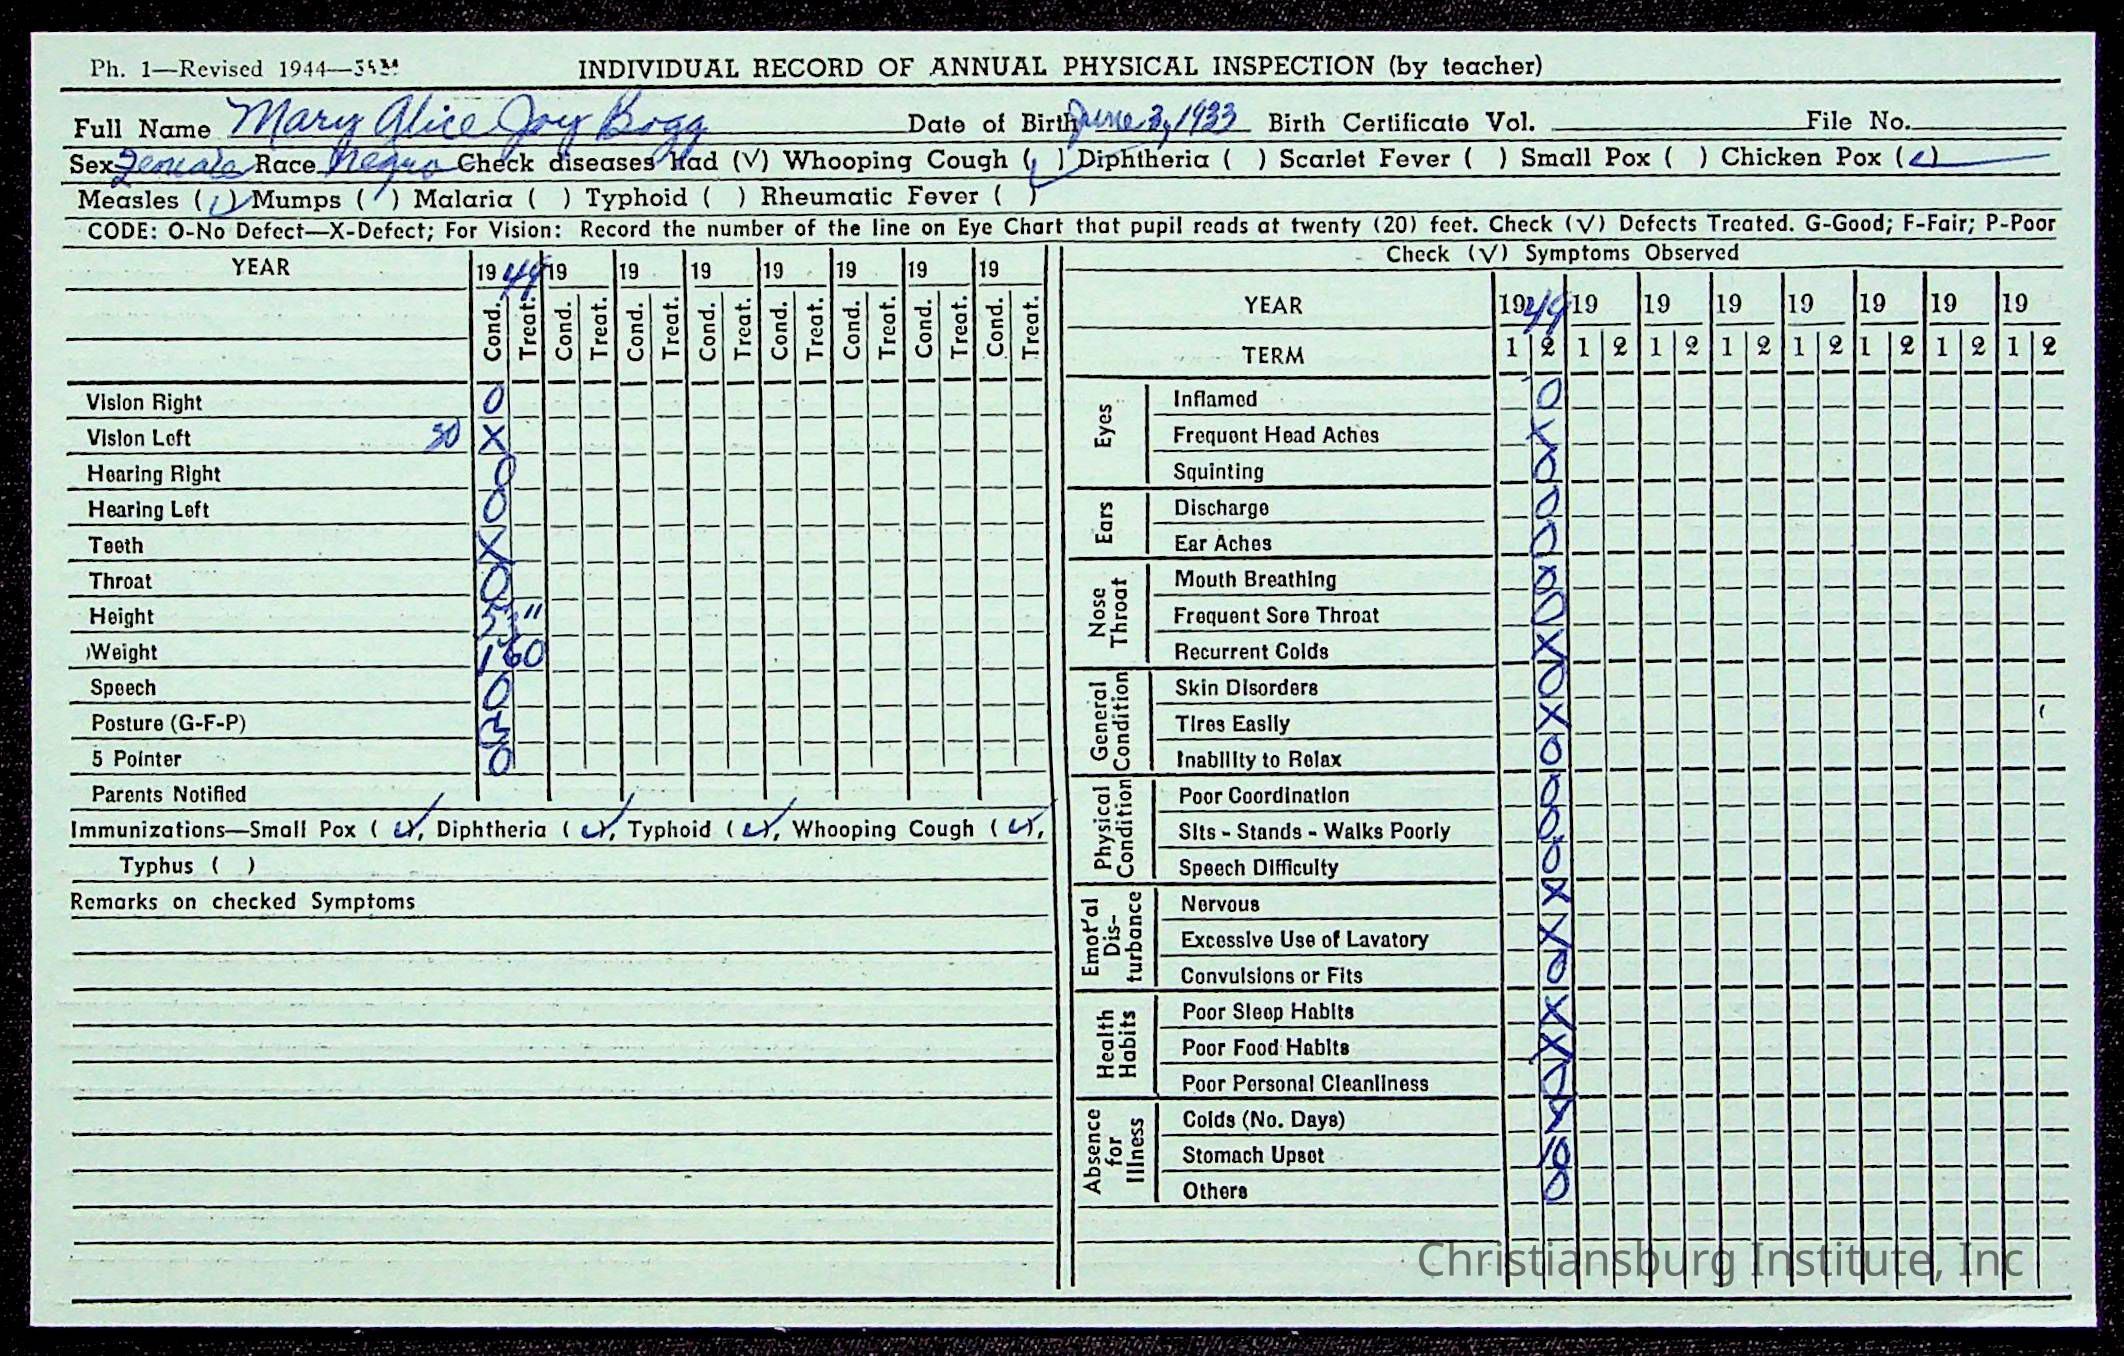 Ph. 1—Revised 1944—
INDIVIDUAL RECORD OF ANNUAL PHYSICAL INSPECTION (by teacher)
Full Name Mary Alice Joy Bogg Date of Birth June 3, 1933 Birth Certificate Vol. File No.
Sex Female Race Negro Check diseases had (√) Whooping Cough (√) Diphtheria ( ) Scarlet Fever ( ) Small Pox ( ) Chicken Pox (√)
Measles (√) Mumps ( ) Malaria ( ) Typhoid ( ) Rheumatic Fever ( )
CODE: O-No Defect—X-Defect; For Vision: Record the number of the line on Eye Chart that pupil reads at twenty (20) feet. Check (√) Defects Treated. G-Good; F-Fair; P-Poor
YEAR 1949 19 19 19 19 19 19 19
Cond. Treat. Cond. Treat. Cond. Treat. Cond. Treat. Cond. Treat. Cond. Treat. Cond. Treat. Cond. Treat.
Vision Right O
Vision Left X
Hearing Right O
Hearing Left O
Teeth X
Throat O
Height "
Weight 160
Speech O
Posture (G-F-P)
5 Pointer O
Parents Notified
Immunizations—Small Pox (√), Diphtheria (√), Typhoid (√), Whooping Cough (√),
Typhus ( )
Remarks on checked Symptoms
Check (√) Symptoms Observed
YEAR 1949 19 19 19 19 19 19 19
TERM 1 2 1 2 1 2 1 2 1 2 1 2 1 2 1 2
Eyes
Inflamed O
Frequent Head Aches X
Squinting O
Ears
Discharge O
Ear Aches O
Nose Throat
Mouth Breathing O
Frequent Sore Throat O
Recurrent Colds X
General Condition
Skin Disorders O
Tires Easily X
Inability to Relax O
Physical Condition
Poor Coordination O
Sits - Stands - Walks Poorly O
Speech Difficulty O
Emot'al Dis-turbance
Nervous X
Excessive Use of Lavatory X
Convulsions or Fits O
Health Habits
Poor Sleep Habits X
Poor Food Habits X
Poor Personal Cleanliness O
Absence for Illness
Colds (No. Days) X
Stomach Upset
Others O
Christiansburg Institute, Inc